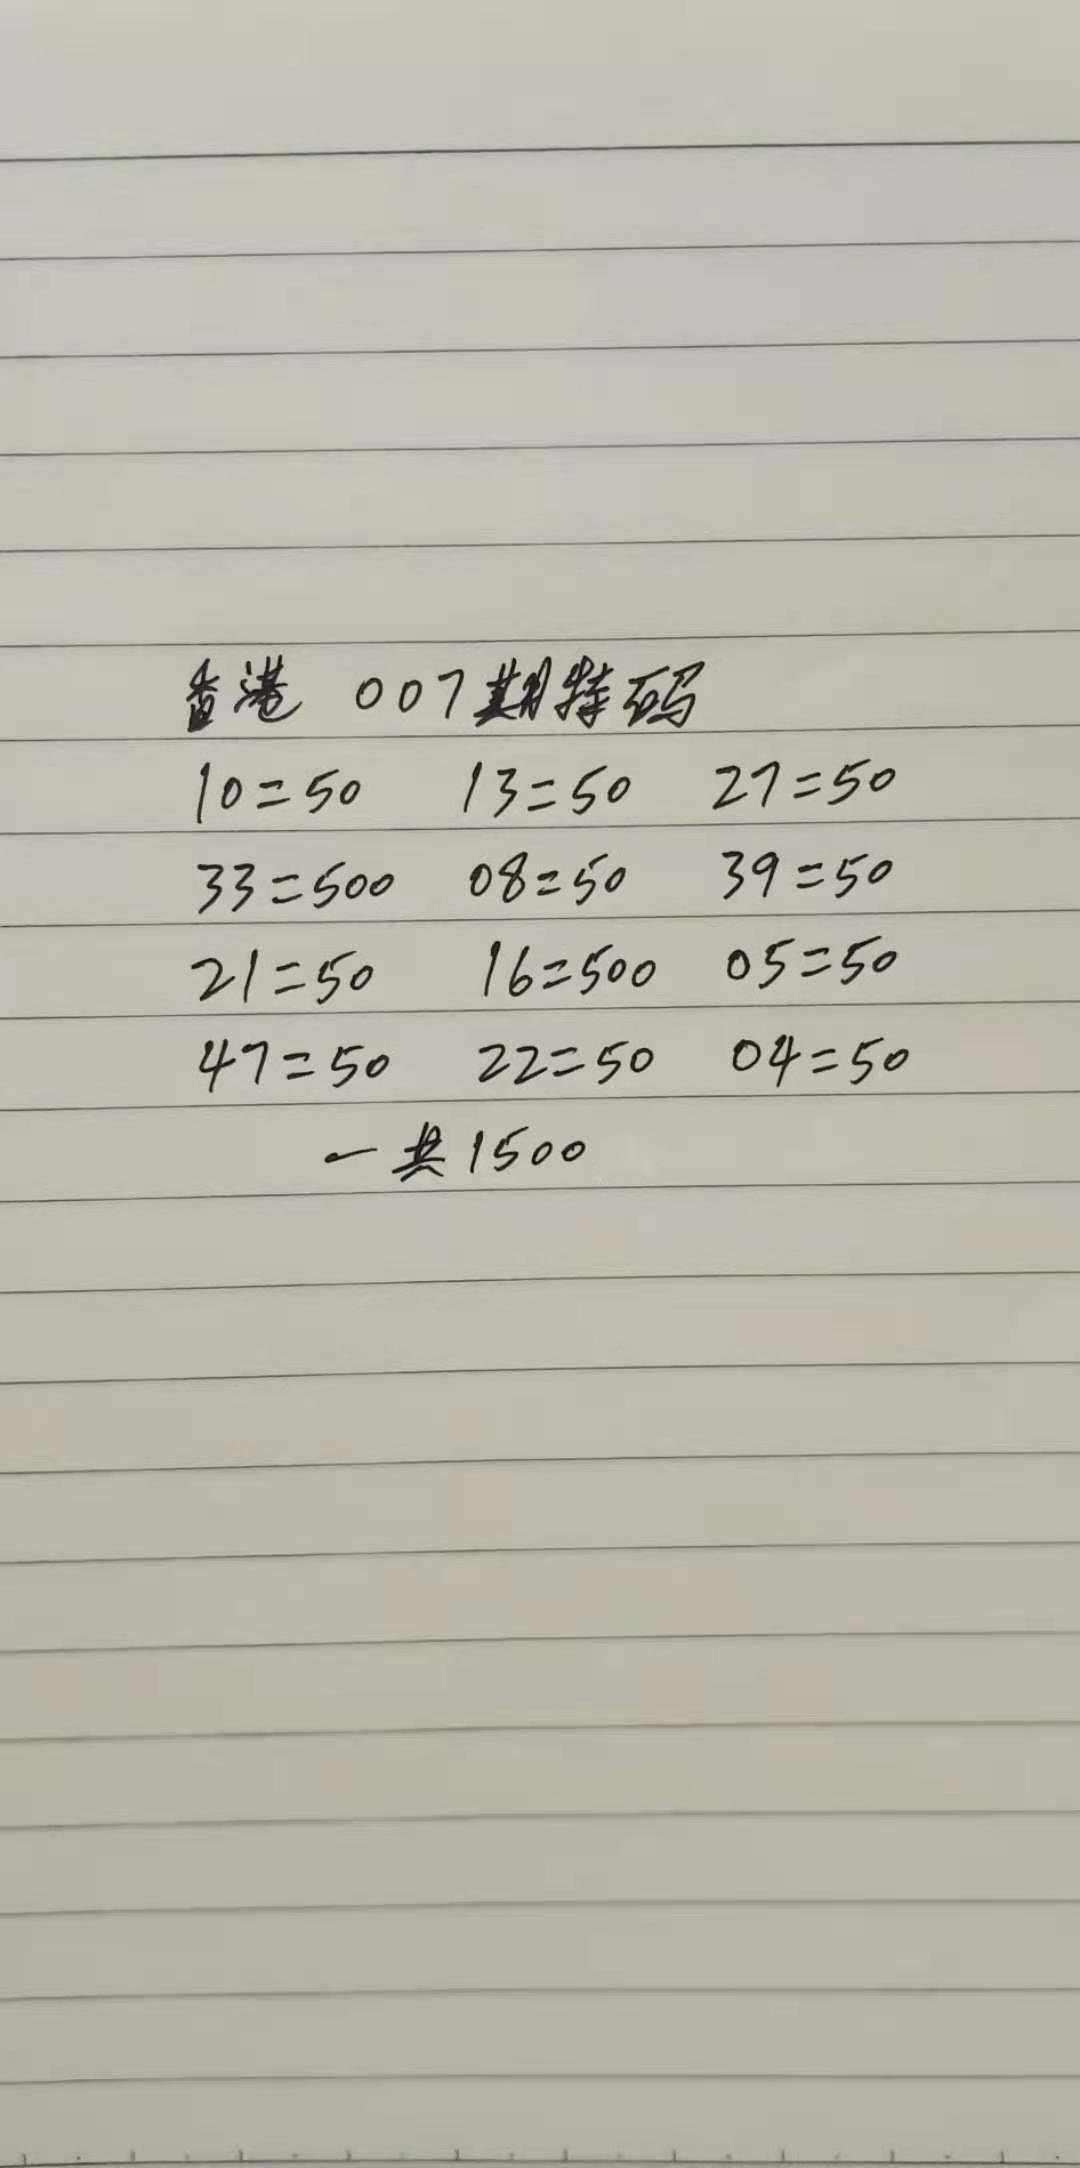 香港 007期特码
10=50 13=50 27=50
33=500 08=50 39=50
21=50 16=500 05=50
47=50 22=50 04=50
一共1500